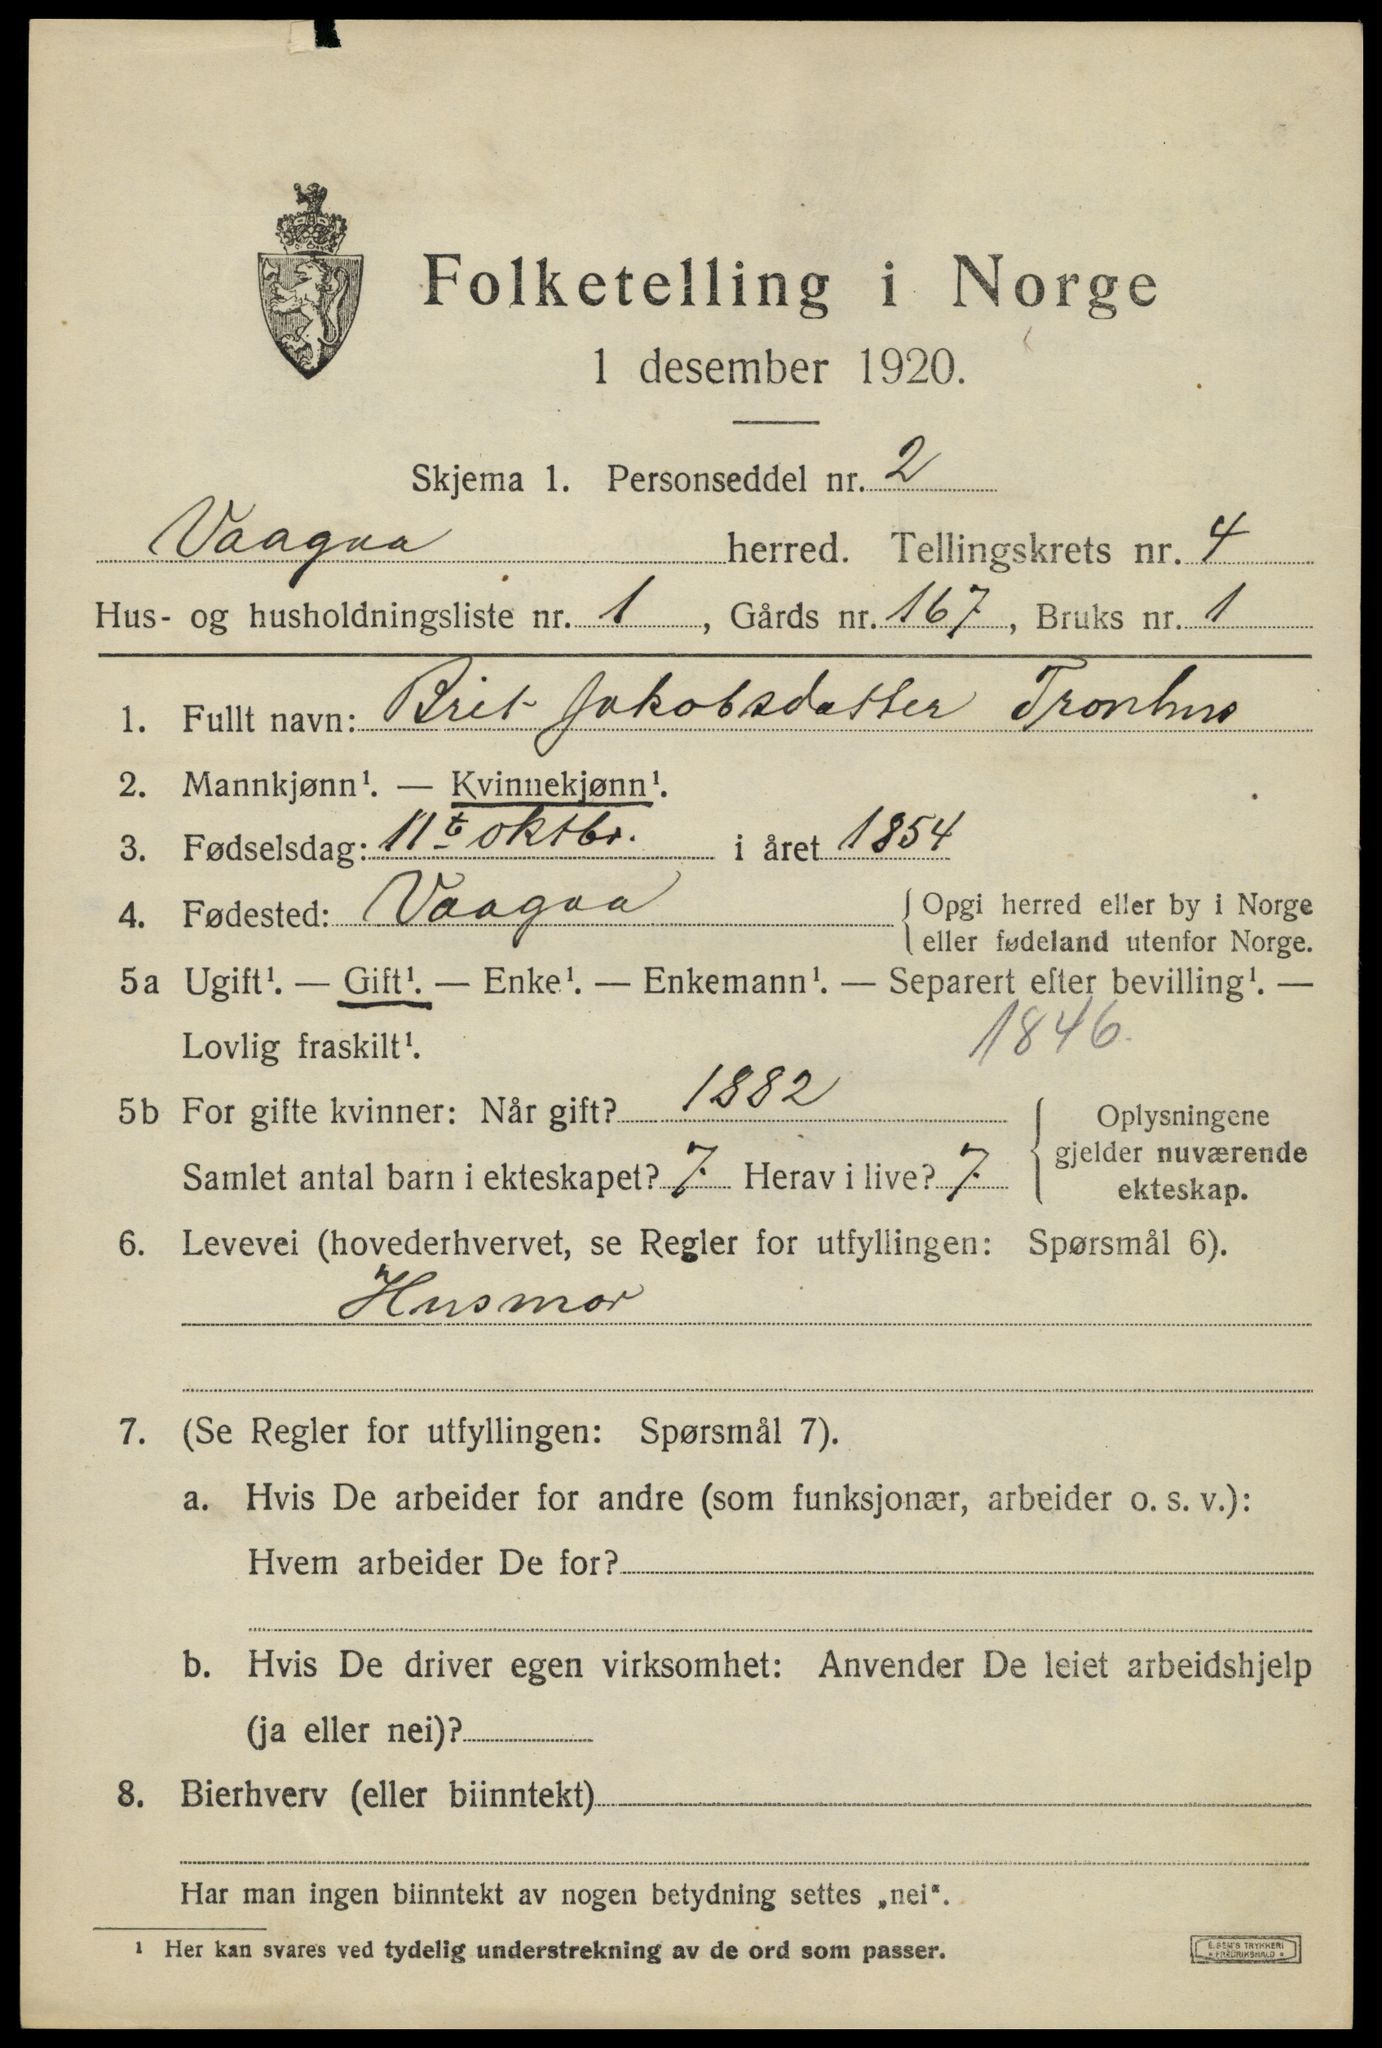 Folketelling i Norge
1 desember 1920.
Skjema 1. Personseddel nr. 2
Vaagaa herred. Tellingskrets nr. 4
Hus- og husholdningsliste nr. 1, Gårds nr. 167, Bruks nr. 1
1. Fullt navn: Brit Jakobsdatter Tronhus
2. Mannkjønn¹. — Kvinnekjønn¹.
3. Fødselsdag: 11te oktbr. i året 1854
4. Fødested: Vaagaa { Opgi herred eller by i Norge
eller fødeland utenfor Norge.
5a Ugift¹. — Gift¹. — Enke¹. — Enkemann¹. — Separert efter bevilling¹. —
Lovlig fraskilt¹. 1846.
5b For gifte kvinner: Når gift? 1882 { Oplysningene
gjelder nuværende
Samlet antal barn i ekteskapet? 7. Herav i live? 7.
ekteskap.
6. Levevei (hovederhvervet, se Regler for utfyllingen: Spørsmål 6).
Husmor
7. (Se Regler for utfyllingen: Spørsmål 7).
a. Hvis De arbeider for andre (som funksjonær, arbeider o. s. v.):
Hvem arbeider De for?
b. Hvis De driver egen virksomhet: Anvender De leiet arbeidshjelp
(ja eller nei)?
8. Bierhverv (eller biinntekt)
Har man ingen biinntekt av nogen betydning settes „nei".
¹ Her kan svares ved tydelig understrekning av de ord som passer.
E. SEM'S TRYKKERI
* FREDRIKSHALD *